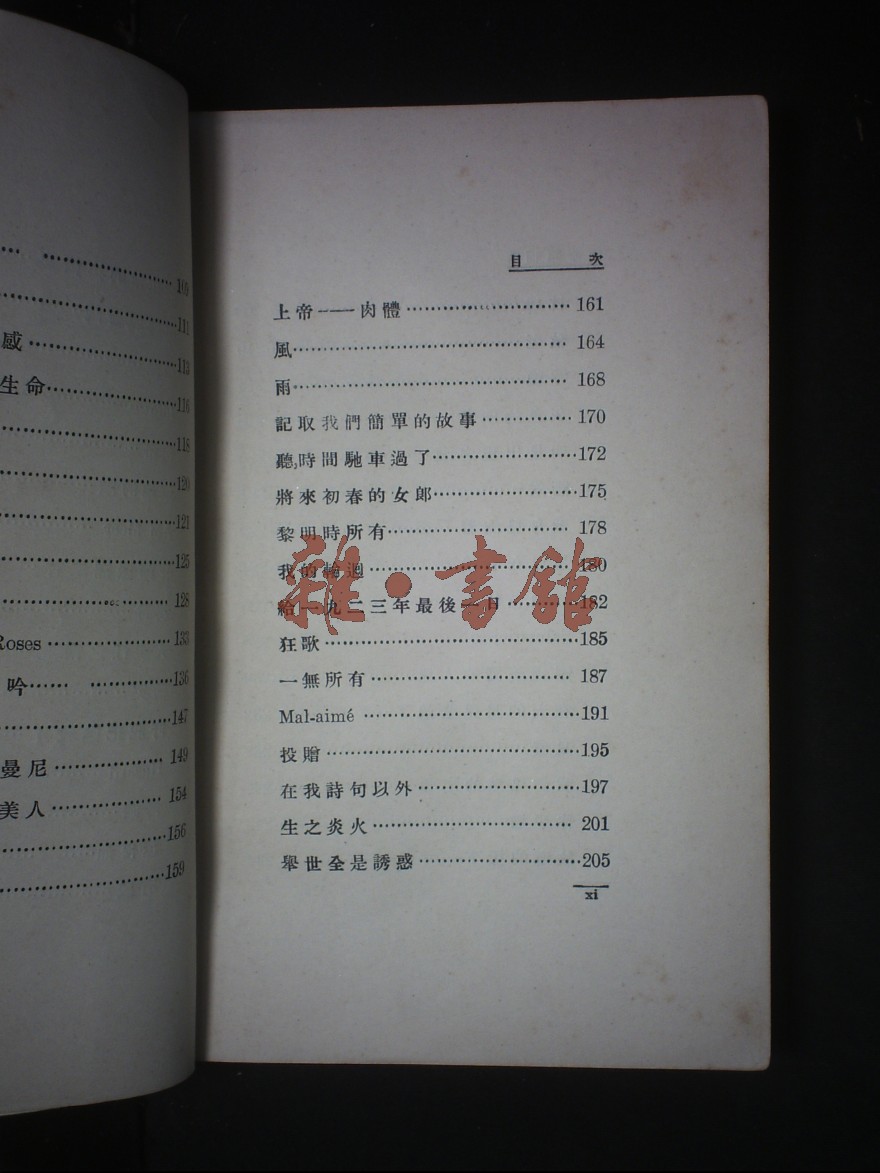 109
111
感……113
生命……116
118
120
121
125
128
Roses……133
吟……136
147
曼尼……149
美人……154
156
159
目次
上帝——肉體……161
風……164
雨……168
記取我們簡單的故事……170
聽,時間馳車過了……172
將來初春的女郎……175
黎明時所有……178
我的輪迴……180
給一九二三年最後一日……182
狂歌……185
一無所有……187
Mal-aimé……191
投贈……195
在我詩句以外……197
生之炎火……201
舉世全是誘惑……205
xi
雜·書館